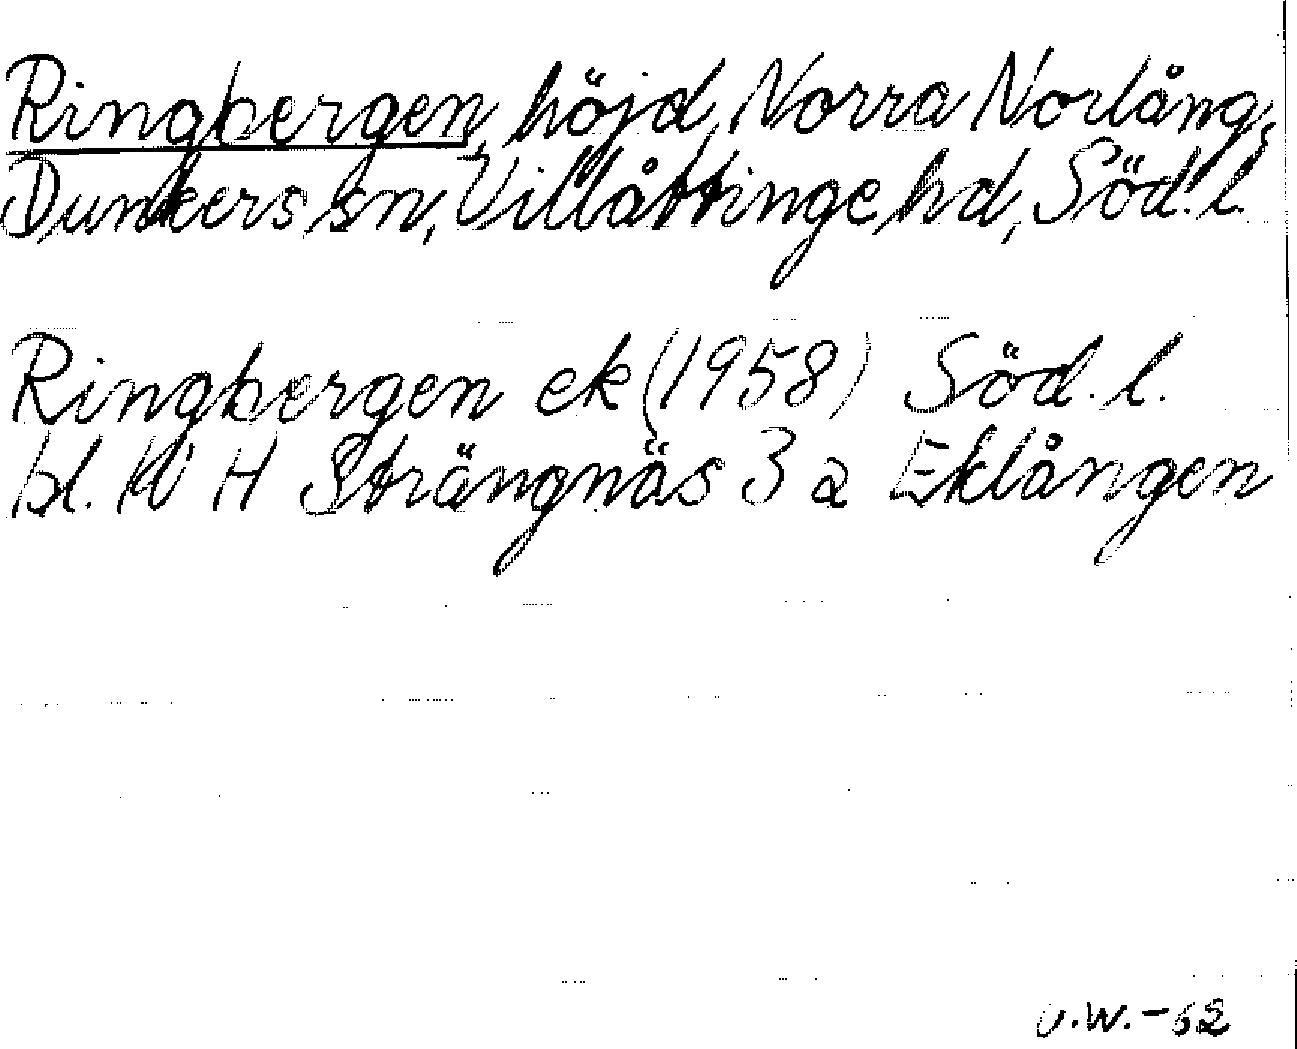 Ringbergen, höjd, Norra Norlång,
Dunkers sn, Villåttinge hd, Söd. l.
Ringbergen ek (1958) Söd. l.
bl. IV H Strängnäs 3 a Eklången
U.W.-62